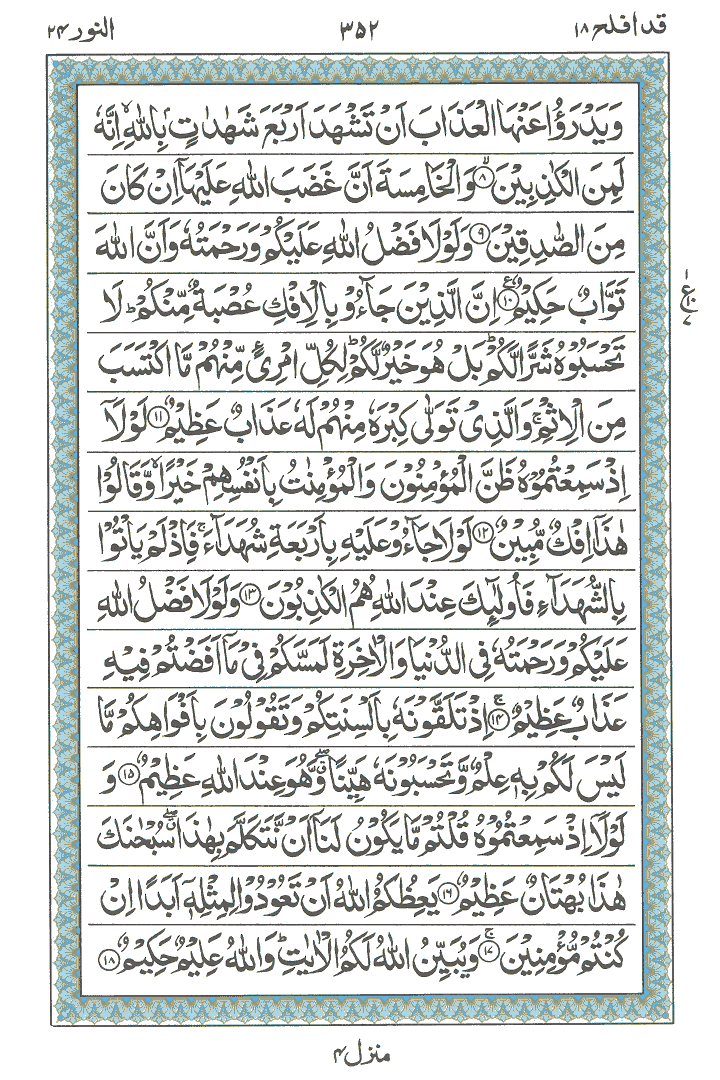 قد افلح ١٨
٣٥٢
النور ٢٤
وَيَدْرَؤُا عَنْهَا الْعَذَابَ اَنْ تَشْهَدَ اَرْبَعَ شَهٰدٰتٍۭ بِاللّٰهِ ۙ اِنَّهٗ
لَمِنَ الْكٰذِبِيْنَ ۙ﴿۸﴾ وَالْخَامِسَةَ اَنَّ غَضَبَ اللّٰهِ عَلَيْهَاۤ اِنْ كَانَ
مِنَ الصّٰدِقِيْنَ ﴿۹﴾ وَلَوْلَا فَضْلُ اللّٰهِ عَلَيْكُمْ وَرَحْمَتُهٗ وَاَنَّ اللّٰهَ
تَوَّابٌ حَكِيْمٌ ﴿۱۰﴾ ع اِنَّ الَّذِيْنَ جَآءُوْ بِالْاِفْكِ عُصْبَةٌ مِّنْكُمْ ؕ لَا
تَحْسَبُوْهُ شَرًّا لَّكُمْ ؕ بَلْ هُوَ خَيْرٌ لَّكُمْ ؕ لِكُلِّ امْرِئٍ مِّنْهُمْ مَّا اكْتَسَبَ
مِنَ الْاِثْمِ ۚ وَالَّذِيْ تَوَلّٰى كِبْرَهٗ مِنْهُمْ لَهٗ عَذَابٌ عَظِيْمٌ ﴿۱۱﴾ لَوْلَاۤ
اِذْ سَمِعْتُمُوْهُ ظَنَّ الْمُؤْمِنُوْنَ وَالْمُؤْمِنٰتُ بِاَنْفُسِهِمْ خَيْرًا ۙ وَّقَالُوْا
هٰذَاۤ اِفْكٌ مُّبِيْنٌ ﴿۱۲﴾ لَوْلَا جَآءُوْ عَلَيْهِ بِاَرْبَعَةِ شُهَدَآءَ ۚ فَاِذْ لَمْ يَاْتُوْا
بِالشُّهَدَآءِ فَاُولٰٓئِكَ عِنْدَ اللّٰهِ هُمُ الْكٰذِبُوْنَ ﴿۱۳﴾ وَلَوْلَا فَضْلُ اللّٰهِ
عَلَيْكُمْ وَرَحْمَتُهٗ فِى الدُّنْيَا وَالْاٰخِرَةِ لَمَسَّكُمْ فِيْ مَاۤ اَفَضْتُمْ فِيْهِ
عَذَابٌ عَظِيْمٌ ۚ﴿۱۴﴾ اِذْ تَلَقَّوْنَهٗ بِاَلْسِنَتِكُمْ وَتَقُوْلُوْنَ بِاَفْوَاهِكُمْ مَّا
لَيْسَ لَكُمْ بِهٖ عِلْمٌ وَّتَحْسَبُوْنَهٗ هَيِّنًا ۖۗ وَّهُوَ عِنْدَ اللّٰهِ عَظِيْمٌ ﴿۱۵﴾ وَ
لَوْلَاۤ اِذْ سَمِعْتُمُوْهُ قُلْتُمْ مَّا يَكُوْنُ لَنَاۤ اَنْ نَّتَكَلَّمَ بِهٰذَا ۖۗ سُبْحٰنَكَ
هٰذَا بُهْتَانٌ عَظِيْمٌ ﴿۱۶﴾ يَعِظُكُمُ اللّٰهُ اَنْ تَعُوْدُوْا لِمِثْلِهٖۤ اَبَدًا اِنْ
كُنْتُمْ مُّؤْمِنِيْنَ ۚ﴿۱۷﴾ وَيُبَيِّنُ اللّٰهُ لَكُمُ الْاٰيٰتِ ؕ وَاللّٰهُ عَلِيْمٌ حَكِيْمٌ ﴿۱۸﴾
منزل ۴